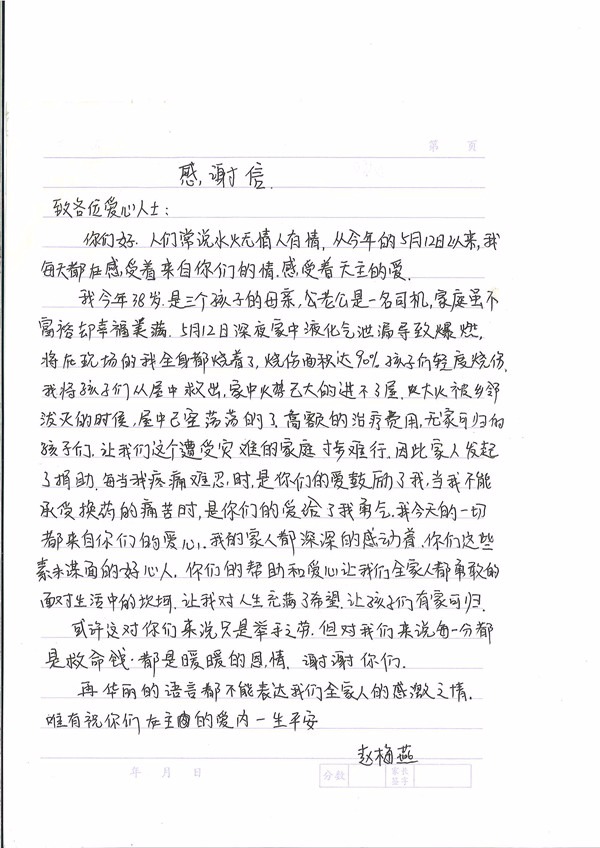 第 页
感谢信.
致各位爱心人士:
你们好. 人们常说水火无情人有情, 从今年的5月12日以来, 我
每天都在感受着来自你们的情. 感受着天主的爱.
我今年38岁. 是三个孩子的母亲, 公老公是一名司机, 家庭虽不
富裕却幸福美满. 5月12日深夜家中液化气泄漏导致爆燃,
将在现场的我全身都烧着了, 烧伤面积达90% 孩子们轻度烧伤.
我将孩子们从屋中救出, 家中火势已大的进不了屋. 大火被乡邻
泼灭的时候, 屋中已空荡荡的了. 高额的治疗费用, 无家可归的
孩子们. 让我们这个遭受灾难的家庭寸步难行. 因此家人发起
了捐助. 每当我疼痛难忍, 时, 是你们的爱鼓励了我, 当我不能
承受换药的痛苦时, 是你们的爱给了我勇气. 我今天的一切
都来自你们的爱心,. 我的家人都深深的感动着. 你们这些
素未谋面的好心人. 你们的帮助和爱心让我们全家人都勇敢的
面对生活中的坎坷. 让我对人生充满了希望, 让孩子们有家可归.
或许这对你们来说只是举手之劳. 但对我们来说每一分都
是救命钱. 都是暖暖的恩情. 谢谢你们.
再华丽的语言都不能表达我们全家人的感激之情.
唯有祝你们在主的爱内一生平安
赵梅燕
年 月 日 分数 家长签字